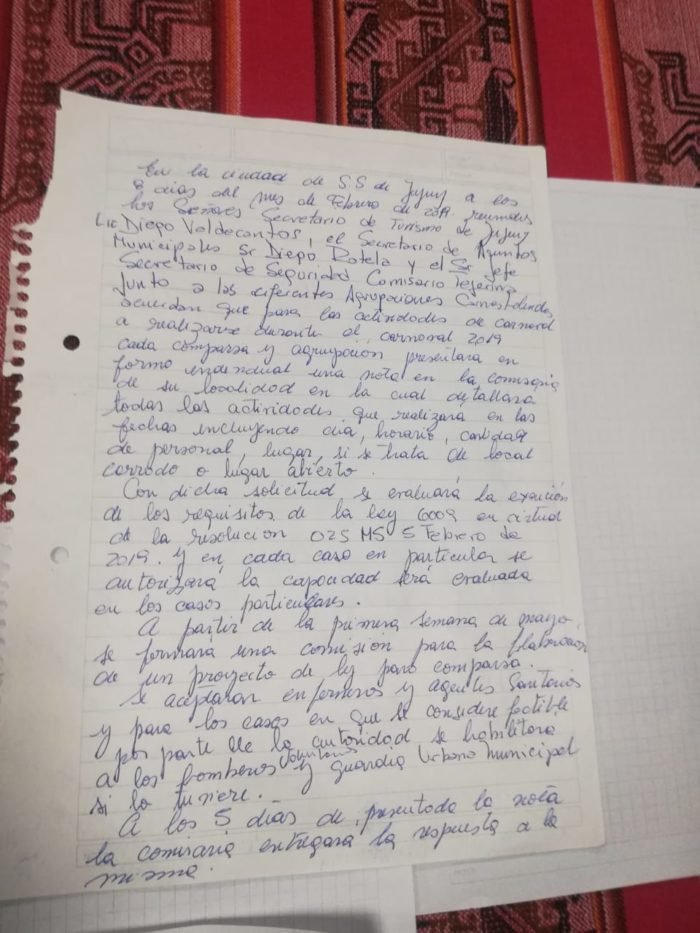 En la ciudad de S.S de Jujuy a los
8 dias del mes de Febrero de 2019. reunidos
los Señores Secretario de Turismo de Jujuy
Lic Diego Valdecantos, el Secretario de Asuntos
Municipales Sr Diego Rotela y el Sr Jefe
Secretario de Seguridad Comisario Tejerina
Junto a las diferentes Agrupaciones Carnestolendas
acuerdan que para las actividades de carnaval
a realizarse durante el carnaval 2019
cada comparsa y agrupacion presentara en
forma individual una nota en la comisaria
de su localidad en la cual detallara
todas las actividades que realizará en las
fechas incluyendo dia, horario, cantidad
de personal, lugar, si se trata de local
cerrado o lugar abierto.
Con dicha solicitud se evaluará la
de los requisitos de la ley 6009 en virtud
de la resolucion 025 MS 5 Febrero de
2019. Y en cada caso en particular se
autorizará la capacidad será evaluada
en los casos particulares.
A partir de la primera semana de mayo,
se formará una comision para la Elaboracion
de un proyecto de ley para comparsa.
Se aceptaran enfermeros y agentes Sanitarios
y para los casos en que se considere factible
por parte de la autoridad se habilitara
a los bomberos Voluntarios y guardia Urbana Municipal
si lo tuviere.
A los 5 dias de presentada la nota
la comisaria entregara la respuesta a la
misma.